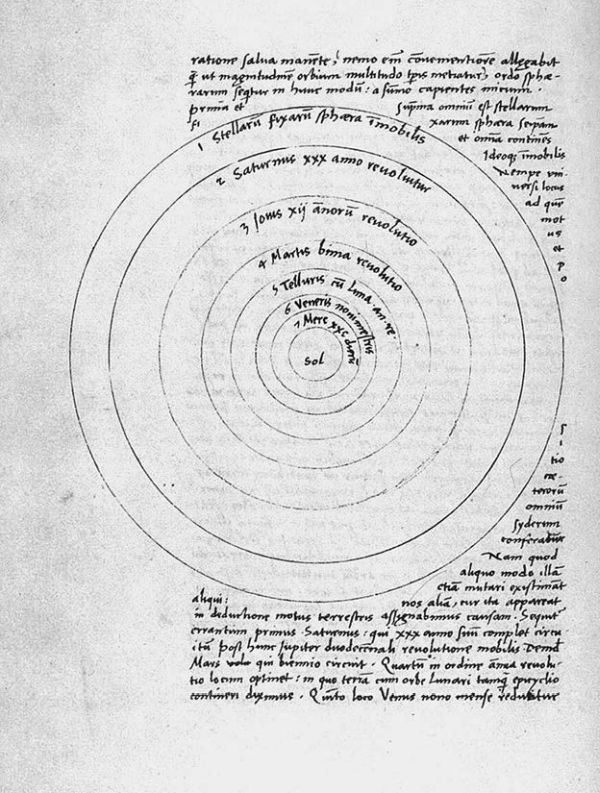 ratione salva manēte, nemo em̄ cōvenientiorē allegabit
q̄ ut magnitudinē orbium multitudo tp̄is metiatur, ordo sphæ-
rarum seq̄tur in hunc modū: a sūmo capientes inicium.
prima et suprema omniū est stellarum
fixarum sphæra seip̄am
et omnia continēs
Ideoq; īmobilis
Nempe vni
versi locus
ad quē
mot
us
et
p
o
1 Stellarū fixarū sphæra īmobilis
2 Saturnus xxx anno revoluitur
3 Jovis xij añorū revolutio
4 Martis bima revolutio
5 Telluris cū Luna an. re.
6 Veneris nonimestris
7 Merc xxc dierū
Sol
si
tio
cæ-
terorū
omniū
syderum
conferatur
Nam quod
aliquo modo illā
etiā mutari existimāt
aliqui: nos aliā, cur ita appareat
in deductione motus terrestris assignabimus causam. Sequit̄
errantium primus Saturnus: qui xxx anno suū complet circu
itū post hunc Jupiter duodecēnali revolutione mobilis Deinde
Mars qui biennio circuit. Quartū in ordine ānua revolu-
tio locum optinet: in quo terrā cum orbe Lunari tamq̄ epicyclio
contineri diximus. Quīto loco Venus nono mense reducitur